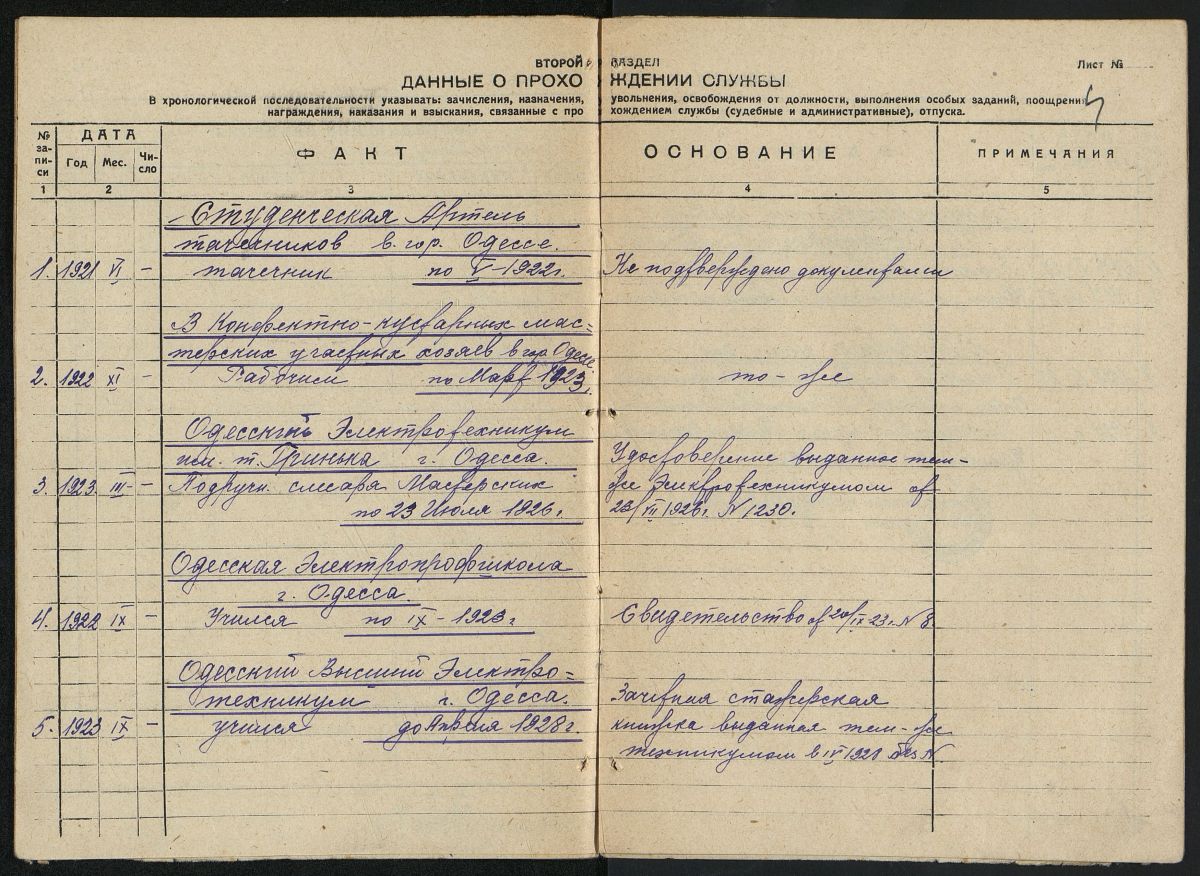 ВТОРОЙ РАЗДЕЛ
Лист №
ДАННЫЕ О ПРОХОЖДЕНИИ СЛУЖБЫ
В хронологической последовательности указывать: зачисления, назначения, увольнения, освобождения от должности, выполнения особых заданий, поощрения,
награждения, наказания и взыскания, связанные с прохождением службы (судебные и административные), отпуска.
№ запи-си
ДАТА
Год Мес. Чи-сло
ФАКТ
ОСНОВАНИЕ
ПРИМЕЧАНИЯ
1 2 3 4 5
Студенческая Артель
тачечников в гор. Одессе.
1. 1921 VI – тачечник по V-1922г. Не подтверждено документами
В Конфектно-кустарных мас-
терских частных хозяев в гор. Одессе
2. 1922 XI – Рабочим по Март 1923г. то-же
Одесский Электротехникум
им. т. Гринька г. Одесса.
Удостоверение выданное тем-
3. 1923 III – Подручн. слесаря Мастерских
же Электротехникумом от
по 23 Июля 1926г.
23/VII 1926г. N 1230.
Одесская Электропрофшкола
г. Одесса.
4. 1922 IX – Учился по IX-1923г. Свидетельство от 20/IX 23г. N 8
Одесский Высший Электро-
техникум г. Одесса.
Зачетная стажерская
5. 1923 IX – учился до Апреля 1928г.
книжка выданная тем-же
техникумом в IV 1928 без N